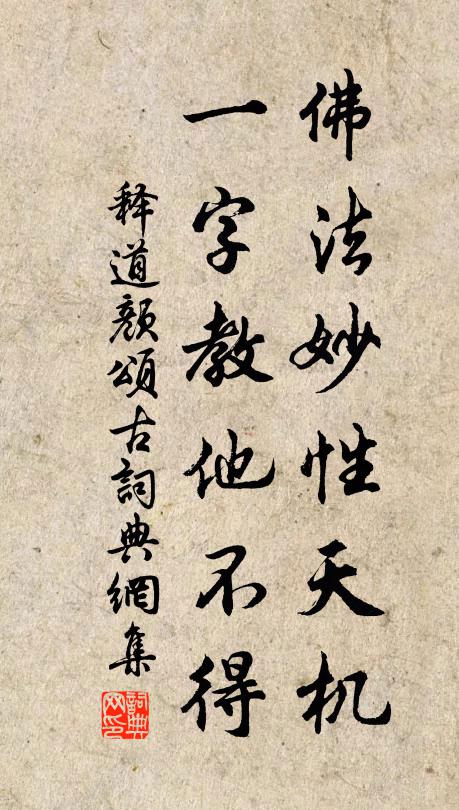 佛法妙性天机
一字教他不得
释道颜頌古詞典網集
詞典网印